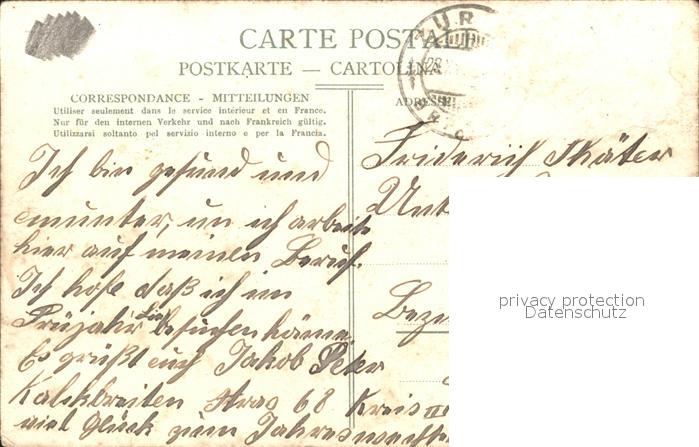 CARTE POSTAL
POSTKARTE — CARTOLINA
CORRESPONDANCE - MITTEILUNGEN
ADRESSE
Utiliser seulement dans le service intérieur et en France.
Nur für den internen Verkehr und nach Frankreich gültig.
Utilizzarsi soltanto pel servizio interno e per la Francia.
Ich bin gesund und
munter, un ich arbeite
hier auf meinen Beruf.
Ich hofe daß ich im
Früjahr Euch besuchen könne.
Es grüßt euch Jakob Peter
Kalkbreiten Stras 68 Kreis III
viel Glück zum Jahreswechsel
Friderich Thäter
Unt
Beze
privacy protection
Datenschutz